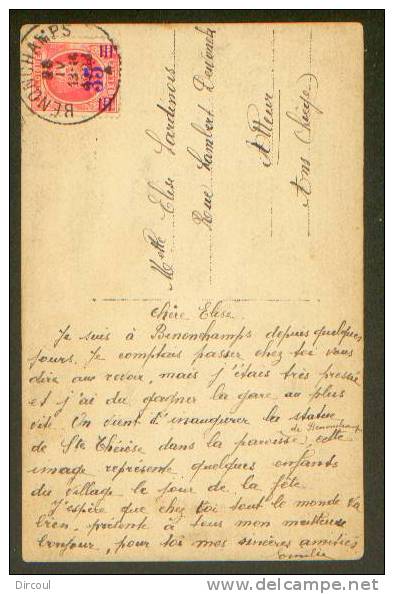 BENONCHAMPS
28
IV
13-14
Melle Elise Sardinois
Rue Lambert
Alleur
Ans Liège
Chère Elise.
Je suis à Benonchamps depuis quelques
jours. Je comptais passer chez toi vous
dire au revoir, mais j'étais très pressée
et j'ai dû gagner la gare au plus
vite. On vient d'inaugurer la statue
de Benonchamps
de Ste Thérèse dans la paroisse, cette
image représente quelques enfants
du village le jour de la fête.
J'espère que chez toi tout le monde va
bien, présente à tous mon meilleur
bonjour, pour toi mes sincères amitiés
Emilie
Dircoul
delcampe.net